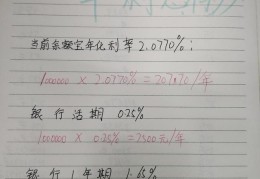 当前余额宝年化利率2.0770%:
1000000 × 2.0770% = 20770/年
银行活期 0.25%
1000000 × 0.25% = 2500元/年
银行1年期 1.65%